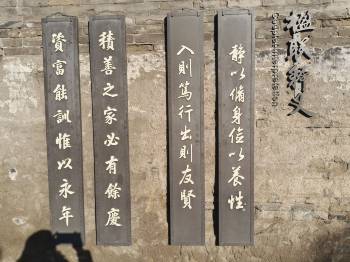 楹聯釋文
靜以脩身儉以養性
入則篤行出則友賢
積善之家必有餘慶
資富能訓惟以永年